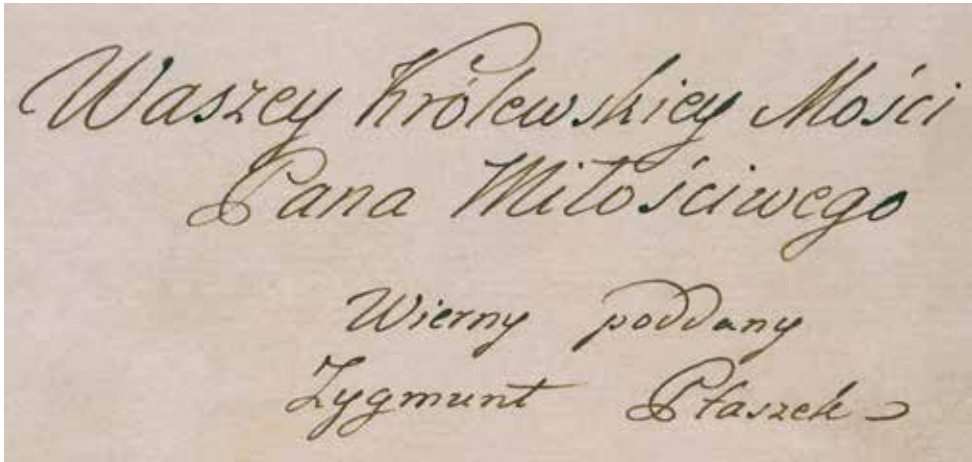 Waszey Królewskiey Mości
Pana Miłościwego
Wierny poddany
Zygmunt Ptaszek